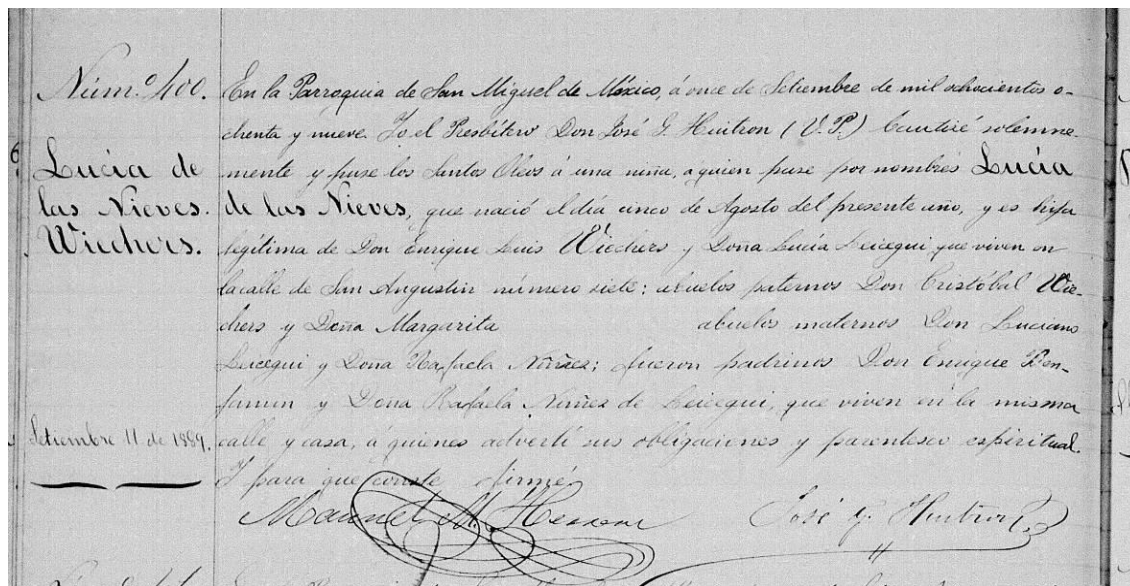 Núm.º 400.
Lucía de
las Nieves.
Wiechers.
Setiembre 11 de 1889.
En la Parroquia de San Miguel de México, á once de Setiembre de mil ochocientos o-
chenta y nueve. Yo el Presbítero Don José G. Huitron (V. P.) bauticé solemne-
mente y puse los Santos Oleos á una niña, a quien puse por nombres Lucía
de las Nieves, que nació el día cinco de Agosto del presente año, y es hija
legítima de Don Enrique Luis Wiechers y Doña Lucía Leicegui que viven en
la calle de San Angustin número siete: abuelos paternos Don Cristóbal Wie-
chers y Doña Margarita abuelos maternos Don Luciano
Leicegui y Doña Rafaela Núñez; fueron padrinos Don Enrique Ben-
jamin y Dona Rafaela Núñez de Leicegui, que viven en la misma
calle y casa, á quienes advertí sus obligaciones y parentesco espiritual.
Y para que conste firmé
Manuel M. José G. Huitron